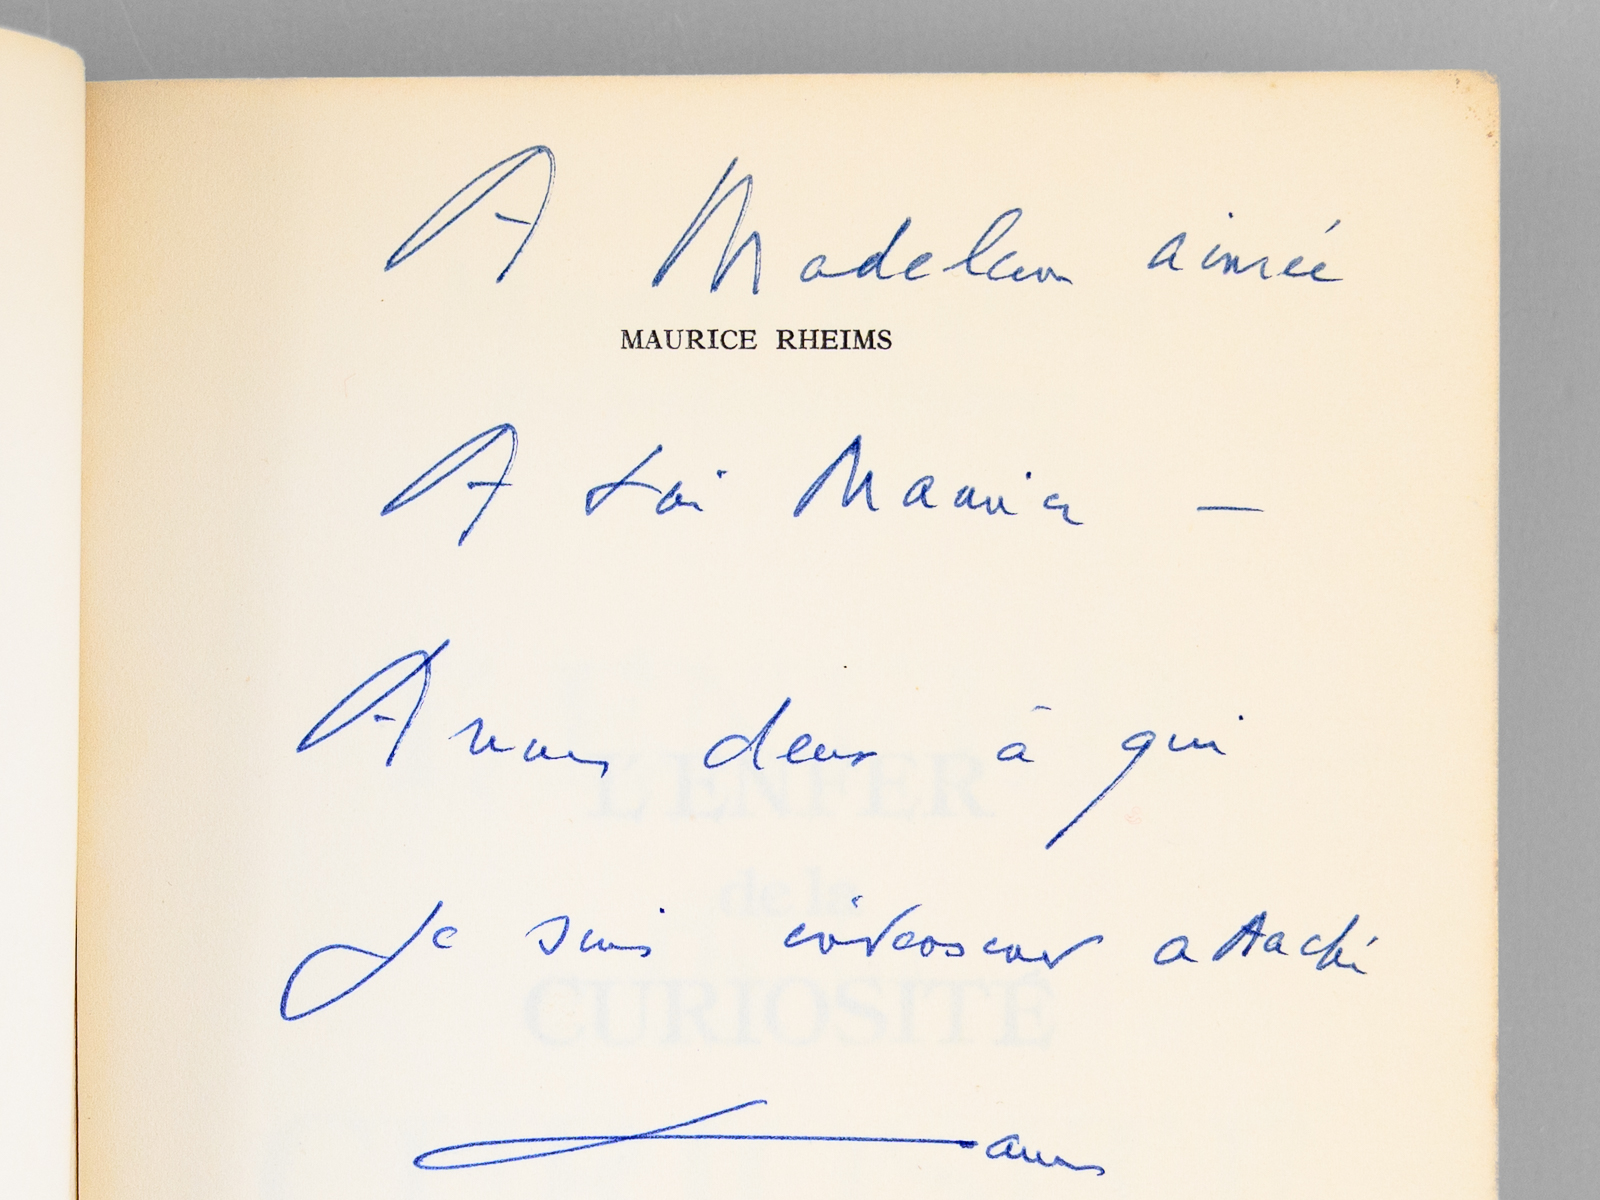 A Madeleine aimée
MAURICE RHEIMS
A toi Maurice —
A vous deux à qui
L'ENFER
de la
Je suis attaché
CURIOSITÉ